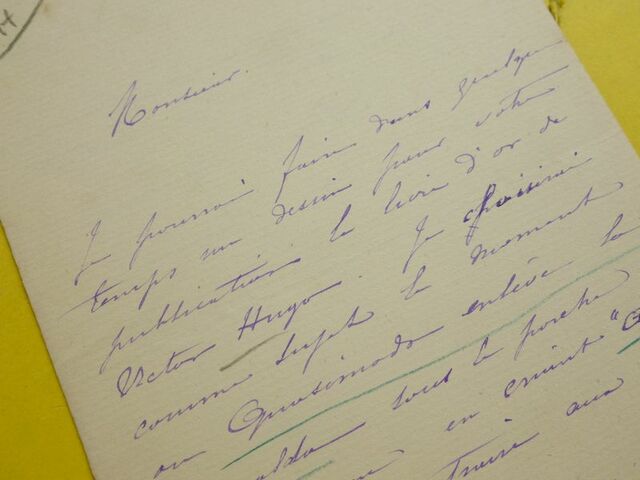 Monsieur.
Je pourrai faire dans quelque
temps un dessin pour votre
publication le livre d'or de
Victor Hugo. Je choisirai
comme sujet le moment
ou Quasimodo enlève la
sous le porche
en criant "
aux